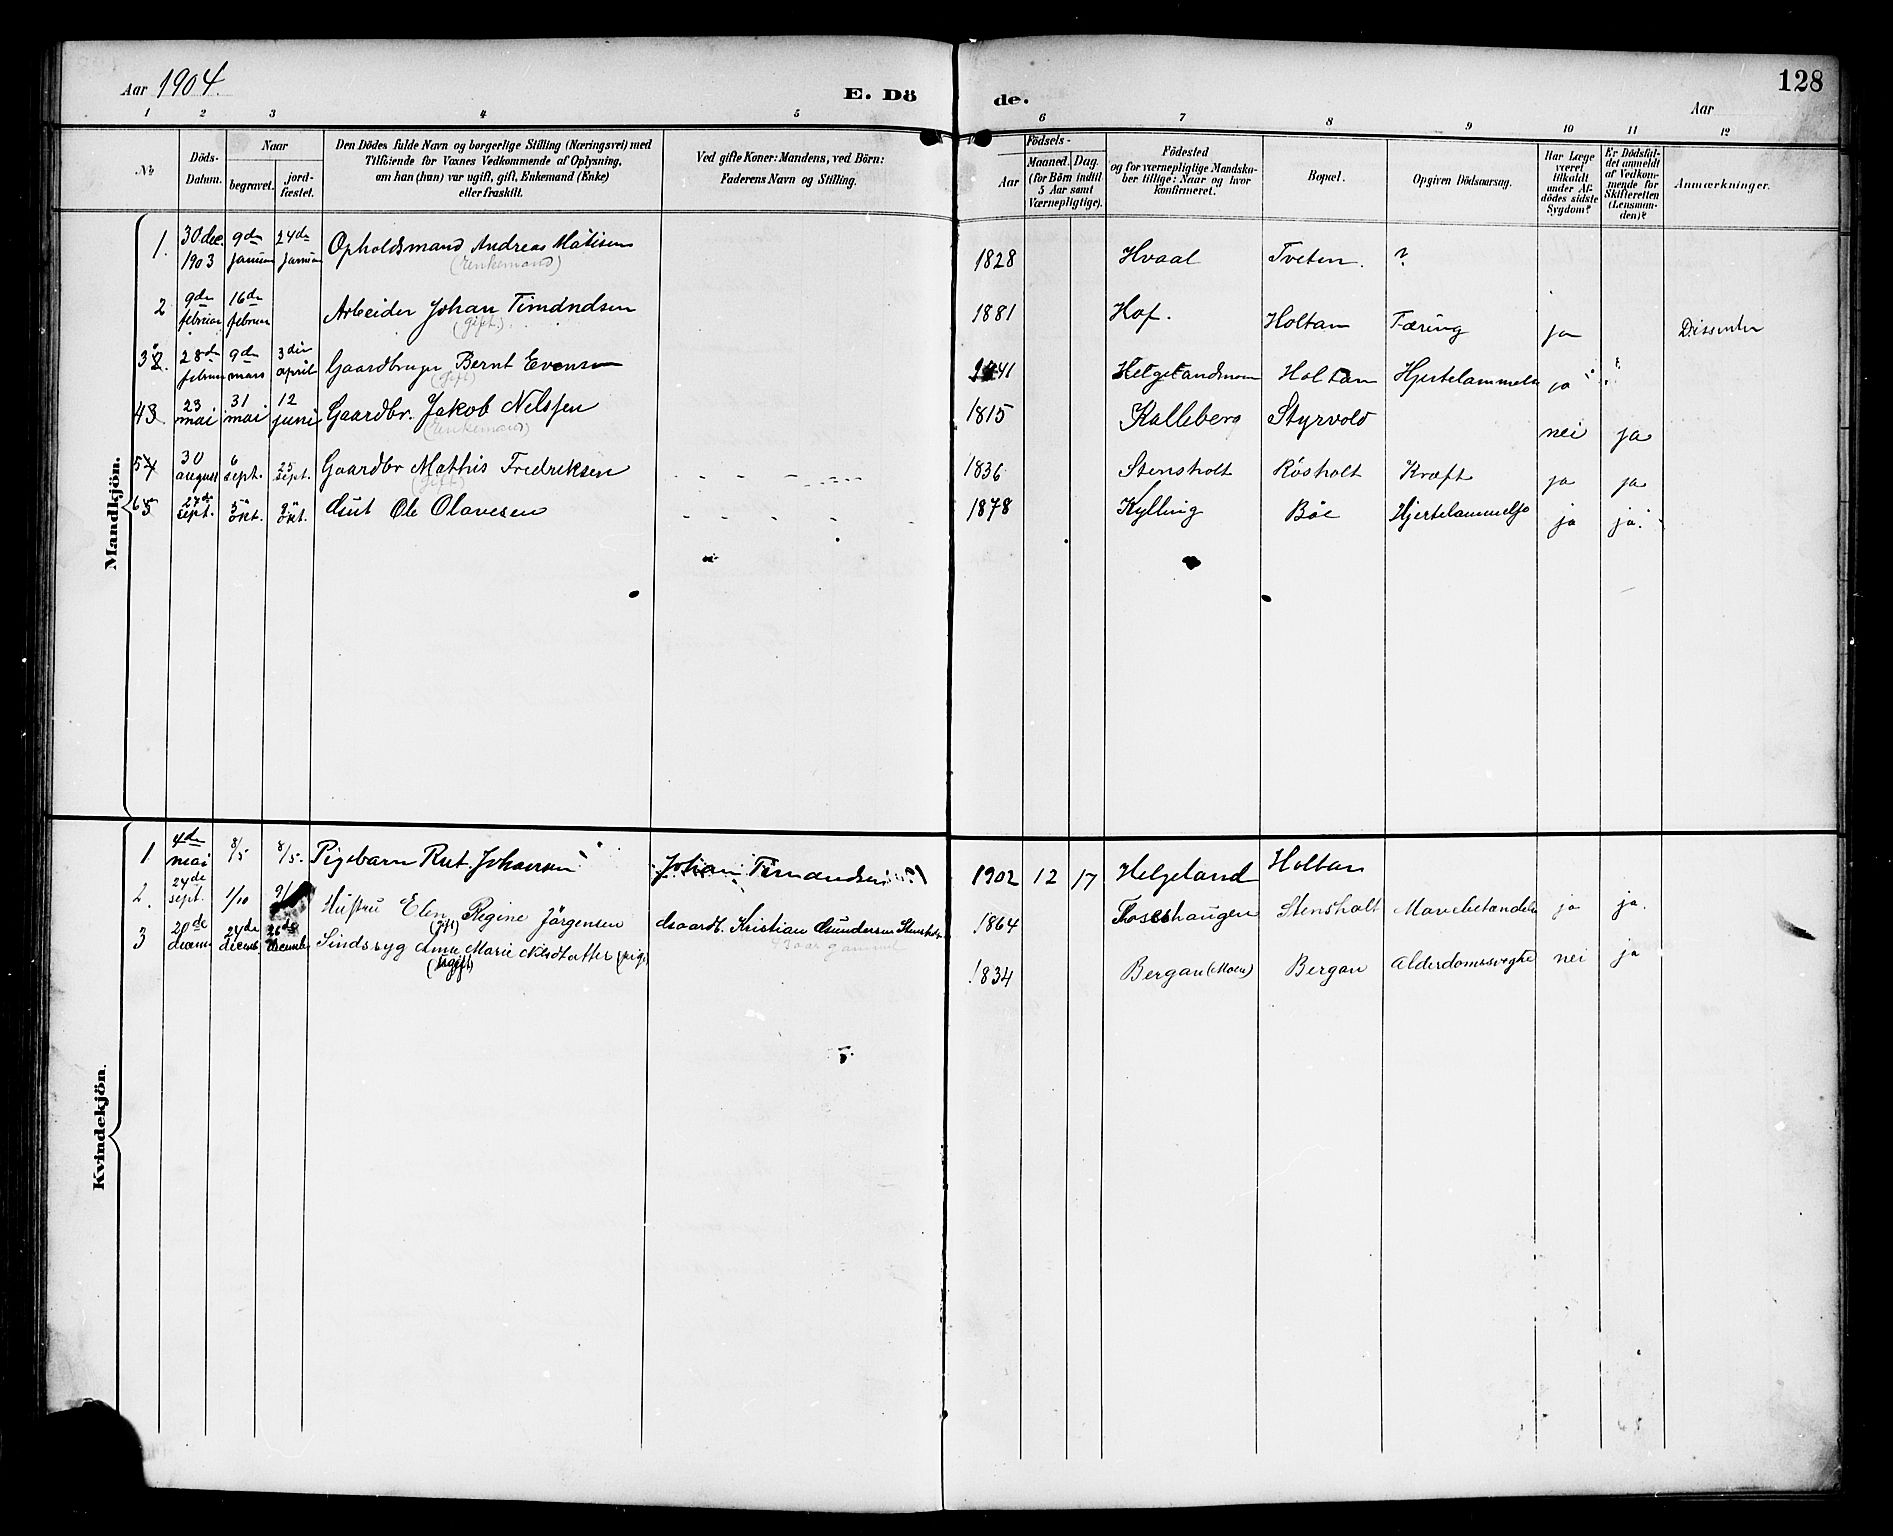 Aar 1904.
E. Dö de.
Aar
128
1 2 3 4 5 6 7 8 9 10 11 12
No
Döds-Datum.
Naar
begravet.
jord-fæstet.
Den Dödes fulde Navn og borgerlige Stilling (Næringsvei) med
Tilföiende for Voxnes Vedkommende af Oplysning,
om han (hun) var ugift, gift, Enkemand (Enke)
eller fraskilt.
Ved gifte Koner: Mandens, ved Börn:
Faderens Navn og Stilling.
Födsels-
Aar
Maaned. Dag.
(for Börn indtil
5 Aar samt
Værnepligtige).
Födested
og for værnepligtige Mandska-
ber tillige: Naar og hvor
konfirmeret.
Bopæl.
Opgiven Dödsaarsag.
Har Læge
været
tilkaldt
under Af-
dödes sidste
Sygdom?
Er Dödsfal-
det anmeldt
af Vedkom-
mende for
Skifteretten
(Lensman-
den)?
Anmærkninger.
Mandkjön.
1. 30 dec. 1903 9de januar 24de januar Opholdsmand Andreas Matisen (Enkemand) 1828 Hvaal Tveten. ?
2 9de februar 16de februar Arbeider Johan Timandsen (gift.) 1881 Hof. Holtan Tæring ja Dissenter
3 28de februar 9de mars 3die april Gaardbruger Bernt Evensen (gift) 1841 Helgelandsmoen Holtan Hjertelammelse ja
4 23 mai 31 mai 12 juni Gaardbr. Jakob Nilssen (Enkemand) 1815 Kalleberg Styrvold nei ja
5 30 august 6 sept. 25 sept. Gaardbr Mathis Fredriksen (gift) 1836 Stensholt Røsholt Kræft ja ja
6 27de sept. 5 okt. 9 okt. Gut Ole Olavesen 1878 Kylling Bøe Hjertelammelse ja ja.
Kvindekjön.
1 4de mai 8/5 8/5. Pigebarn Rut Johansen Johan Timandsen 1902 12 17 Helgeland Holtan
2. 24de sept. 1/10 Hustru Elen Regine Jørgensen (gift) Gaardb. Kristian Gundersen Stensholt 1864 Stensholt Mavebetændelse ja ja.
43 aar gammel
3 20de decem 24de decemb. 26de decemb Sindssyg Anne Marie Nilsdatter (pige) (ugift) 1834 Bergan (Moen) Bergan Alderdomssvaghed nei ja